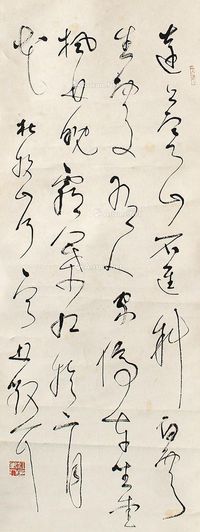 遠上寒山石逕斜白雲
生處有人家停車坐愛
楓林晚霜葉紅於二月
花 杜牧山行 散耳